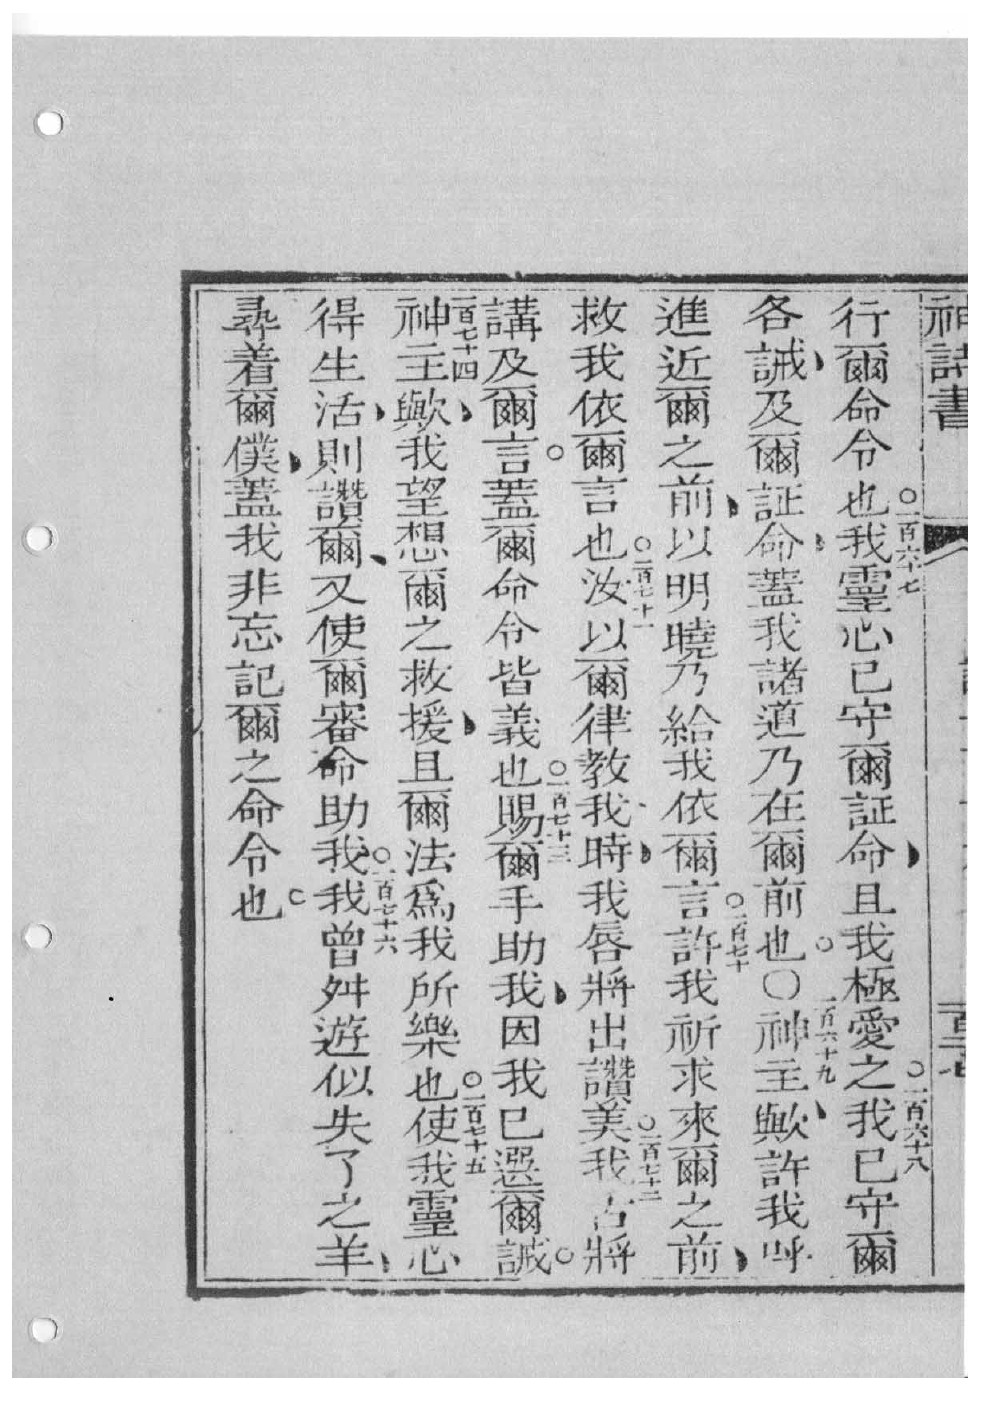 神詩書
行爾命令也○一百六十七我靈心已守爾証命且我極愛之○一百六十八我已守爾
各誡及爾証命蓋我諸道乃在爾前也○一百六十九神主歟許我呼
進近爾之前以明曉乃給我依爾言○一百七十許我祈求來爾之前
救我依爾言也○一百七十一汝以爾律教我時我唇將出讚美○一百七十二我舌將
講及爾言蓋爾命令皆義也○一百七十三賜爾手助我因我已選爾誡○
一百七十四神主歟我望想爾之救援且爾法爲我所樂也○一百七十五使我靈心
得生活則讚爾又使爾審命助我○一百七十六我曾舛遊似失了之羊
尋着爾僕蓋我非忘記爾之命令也